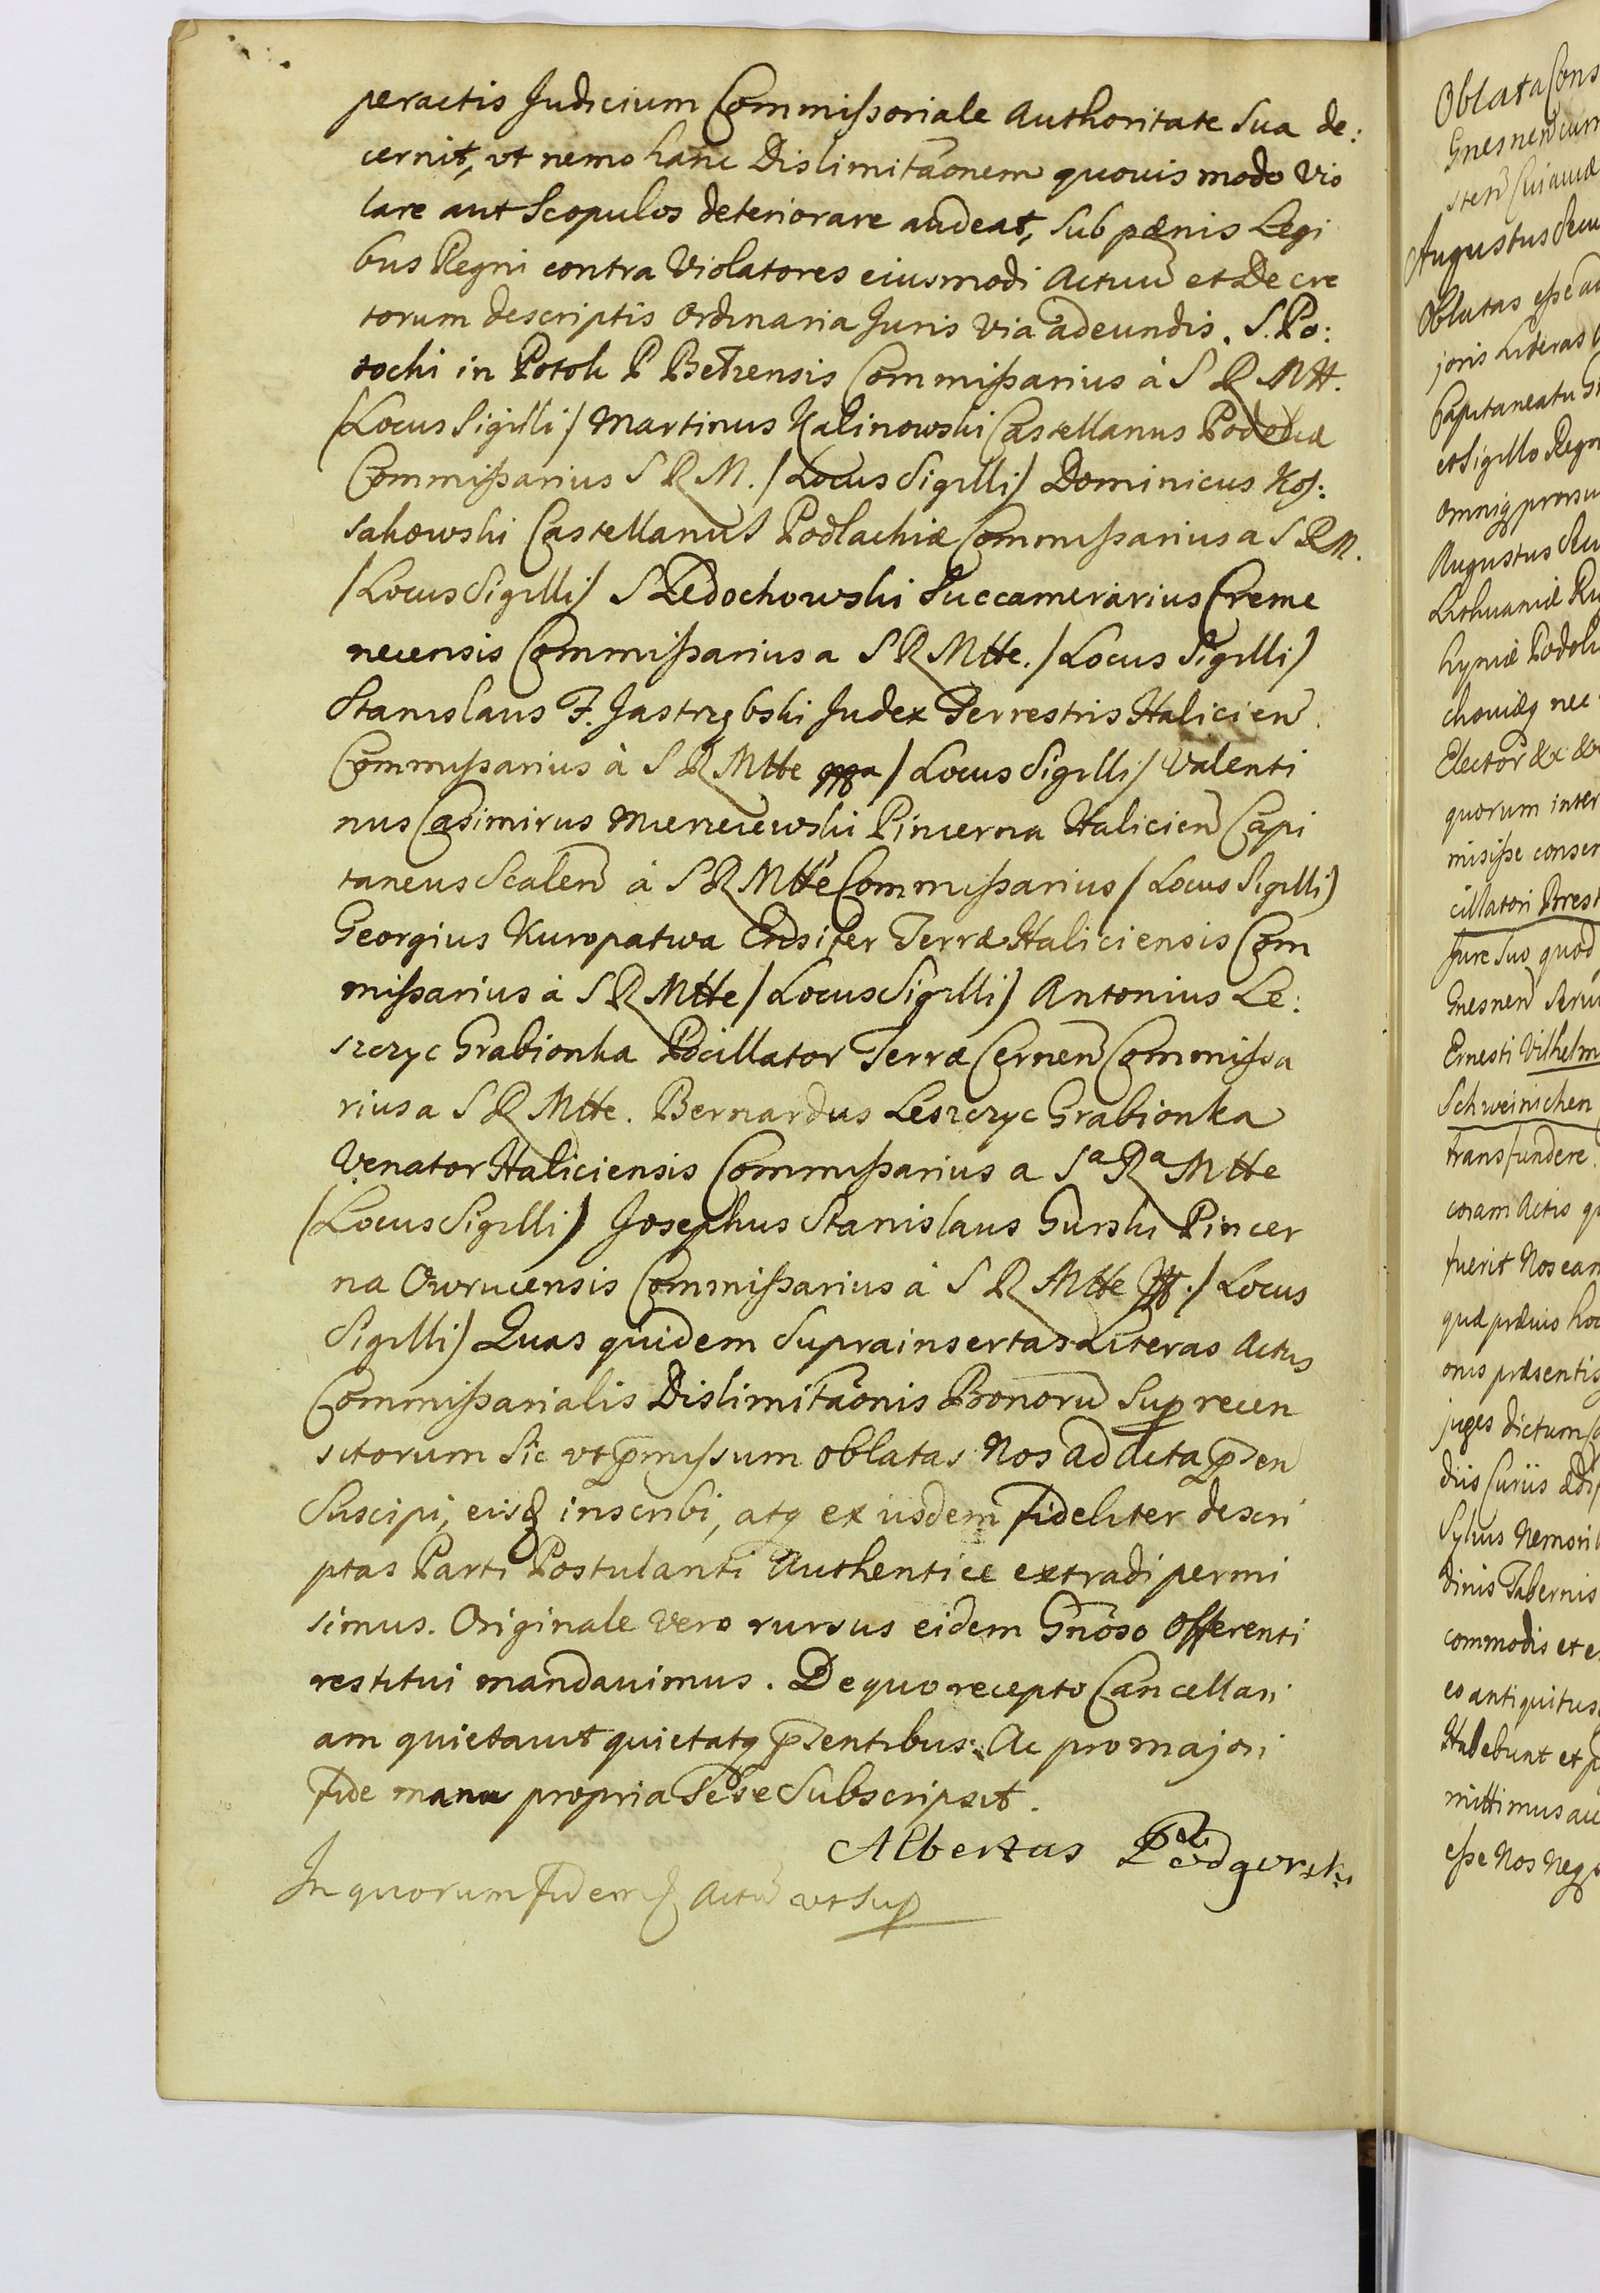 peractis Judicium Commissoriale Authoritate Sua de:
cernit, vt nemo hanc Dislimitaonem quouis modo vio
lare aut Scopulos deteriorare audeat, Sub pænis Legi
bus Regni contra Violatores eiusmodi Actuū et Decre
torum descriptis Ordinaria Juris via adeundis. S. Po:
tocki in Potok P Commissarius à S R Mtt.
/Locus Sigilli/ Martinus Kalinowski Castellanus Podoliæ
Commissarius S R M. /Locus Sigilli/ Dominicus Kos:
sakowski Castellanus Podlachiæ Commissarius a S R M.
/Locus Sigilli/ S Ledochowski Succamerarius Creme
necensis Commissarius a S R Mtte. /Locus Sigilli/
Stanislaus F. Jastrzębski Judex Terrestris Halicien
Commissarius à S R Mtte /Locus Sigilli/ Valenti
nus Casimirus Pincerna Halicien Capi
taneus Scalen à S R Mtte Commissarius /Locus Sigilli/
Georgius Kuropatwa Ensifer Terræ Haliciensis Com
missarius à S R Mtte /Locus Sigilli/ Antonius Le:
szczyc Grabionka Pocillator Terræ Cernen Commissa
rius a S R Mtte. Bernardus Leszczyc Grabionka
Venator Haliciensis Commissarius a Sa Ra Mtte
/Locus Sigilli/ Josephus Stanislaus Gurski Pincer
na Owrucensis Commissarius à S R Mtte /Locus
Sigilli/ Quas quidem Suprainsertas Literas Actus
Commissarialis Dislimitaonis Bonorū Sup recen
sitorum Sic vt pmissum oblatas Nos ad Acta psen
Suscipi, eisq inscribi, atq ex iisdem fideliter descri
ptas Parti Postulanti Authentice extradi permi
simus. Originale vero rursus eidem Gnoso Offerenti
restitui mandauimus. De quo recepto Cancellari
am quietauit quietatq psentibus. Ac pro majori
fide manu propria Sese Subscripsit.
Albertus Podgorski
In quorum fidem Actū vt Sup
Oblata Cons
Gnesnen cum
sten Cuiaviæ
Augustus Secu
Oblatas esse ad
joris Literas
Capitaneatu G
et Sigillo Regn
omniq prorsu
Augustus Secu
Lithuaniæ Ru
hyniæ Podol
chouiæq nec
Elector &c &c
quorum inter
misisse consen
cillatori Brest
Jure Suo quod
Gnesnen Serui
Ernesti Vilhelm
Schweinichen
transfundere
coram Actis q
fuerit Nos ean
quæ præuio hoc
onis præsentis
juges dictum
diis Curiis ædi
Syluis Nemorib
dinis Tabernis
commodis et e
eo antiquitus
Habebunt et p
mittimus au
esse Nos Neq